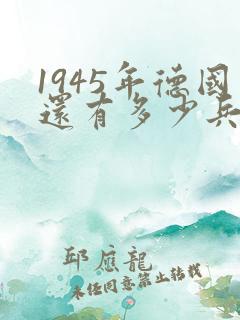 1945年德國
還有多少兵
邱應龍
未经同意禁止转载